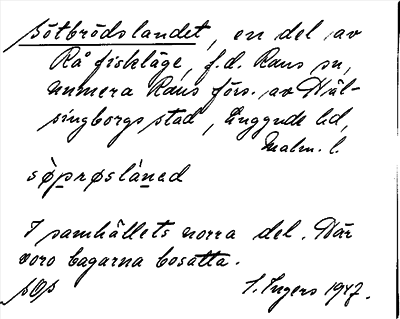 Sötbrödslandet, en del av
Rå fiskläge, f.d. Raus sn,
numera Raus förs. av Häl-
singborgs stad, Luggude hd,
Malm. l.
söprøsláned
I samhällets norra del. Där
voro bagarna bosatta.
I. Ingers 1947.